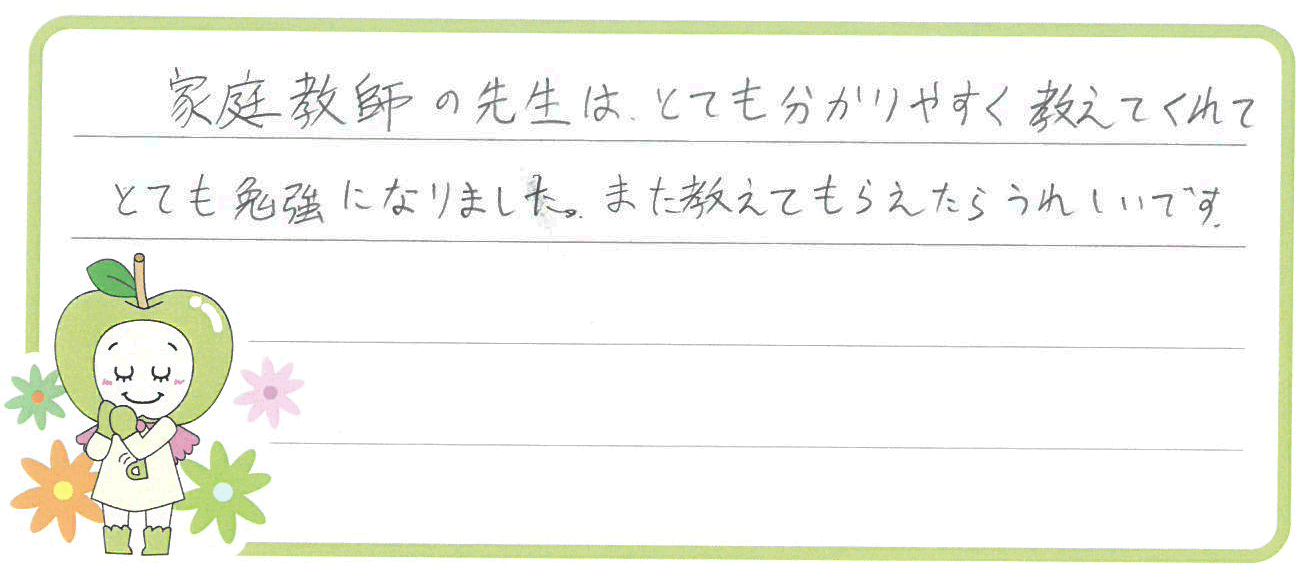 家庭教師の先生は、とても分かりやすく教えてくれて
とても勉強になりました。また教えてもらえたらうれしいです。